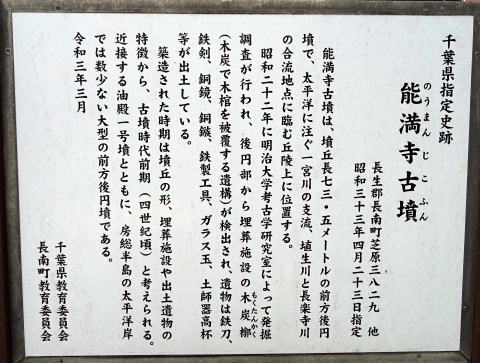 千葉県指定史跡
のうまんじこふん
能満寺古墳
長生郡長南町芝原三八二九 他
昭和三十三年四月二十三日指定
能満寺古墳は、墳丘長七三・五メートルの前方後円
墳で、太平洋に注ぐ一宮川の支流、埴生川と長楽寺川
の合流地点に臨む丘陵上に位置する。
昭和二十二年に明治大学考古学研究室によって発掘
調査が行われ、後円部から埋葬施設の木炭槨
もくたんかく
(木炭で木棺を被覆する遺構)が検出され、遺物は鉄刀、
鉄剣、銅鏡、銅鏃、鉄製工具、ガラス玉、土師器高杯
等が出土している。
築造された時期は墳丘の形、埋葬施設や出土遺物の
特徴から、古墳時代前期(四世紀頃)と考えられる。
近接する油殿一号墳とともに、房総半島の太平洋岸
では数少ない大型の前方後円墳である。
令和三年三月
千葉県教育委員会
長南町教育委員会